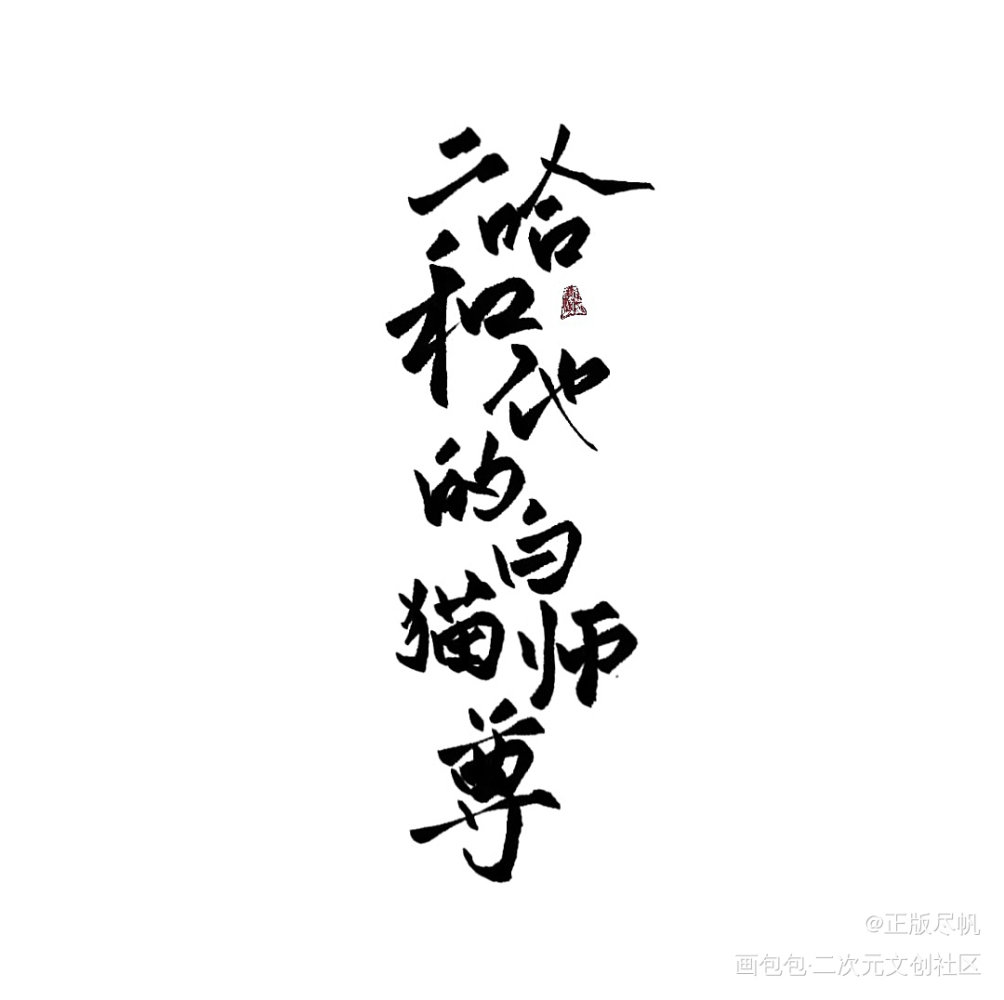 二哈
和他
的白
猫师
尊
@正版尽帆
画包包·二次元文创社区